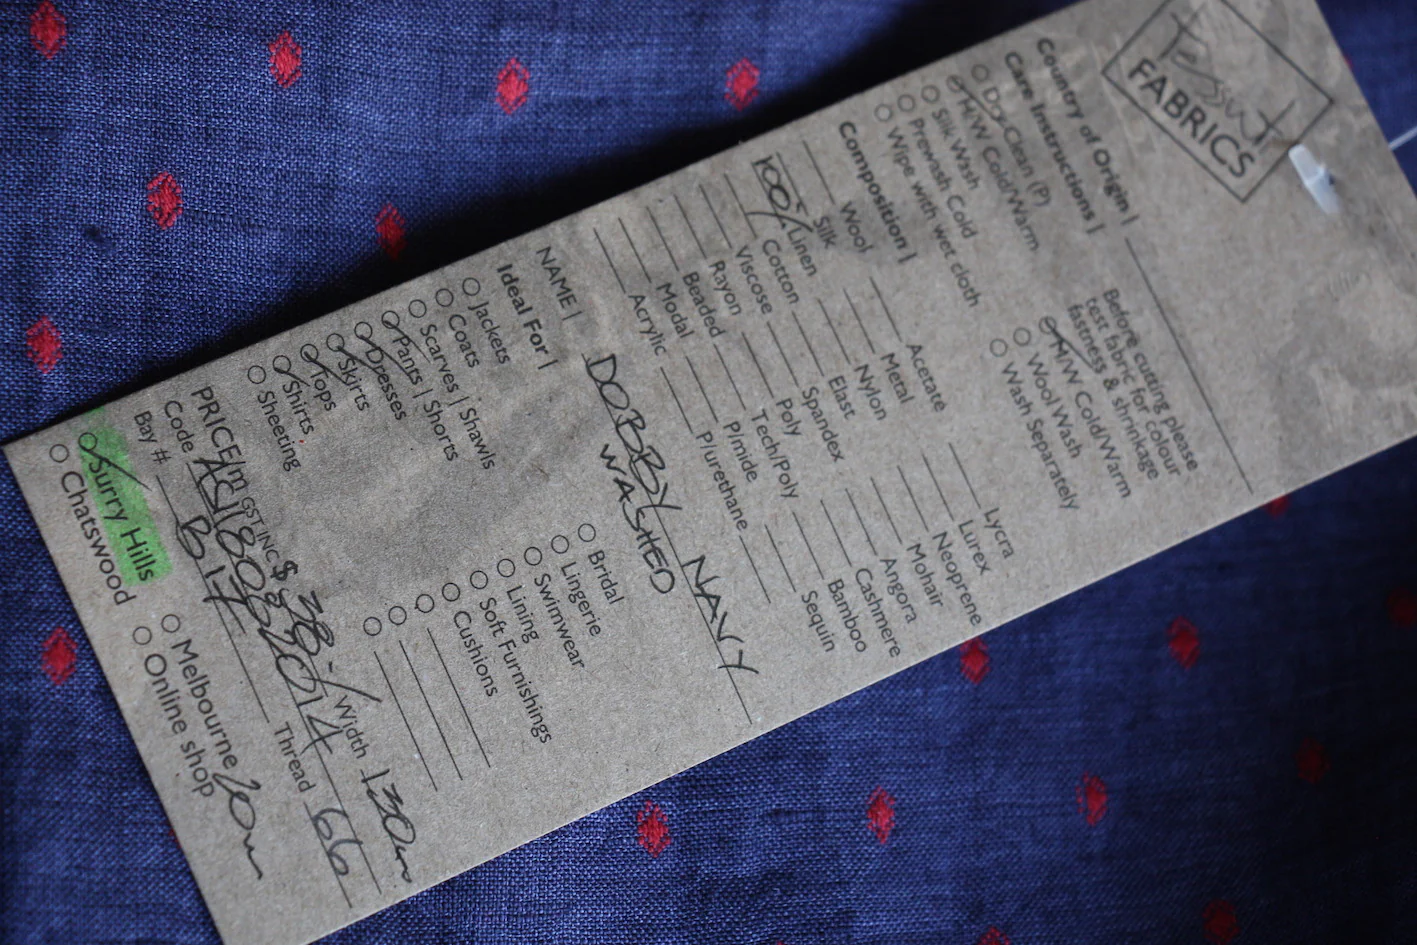 Tessuti
FABRICS
Country of Origin |
Care Instructions |
Dry-Clean (P)
H/W Cold/Warm
Silk Wash
Prewash Cold
Wipe with wet cloth
Before cutting please
test fabric for colour
fastness & shrinkage
H/W Cold/Warm
Wool Wash
Wash Separately
Composition |
Wool
Silk
100% Linen
Cotton
Viscose
Rayon
Beaded
Modal
Acrylic
Acetate
Metal
Nylon
Elast
Spandex
Poly
Tech/Poly
P/mide
P/urethane
Lycra
Lurex
Neoprene
Mohair
Angora
Cashmere
Bamboo
Sequin
NAME | DOBBY NAVY
WASHED
Ideal For |
Jackets
Coats
Scarves | Shawls
Pants | Shorts
Dresses
Skirts
Tops
Shirts
Sheeting
Bridal
Lingerie
Swimwear
Lining
Soft Furnishings
Cushions
PRICE/m GST INC $ 38.-/ Width 130cm
Code Thread 66
Bay # B17
Surry Hills
Chatswood
Melbourne
Online shop